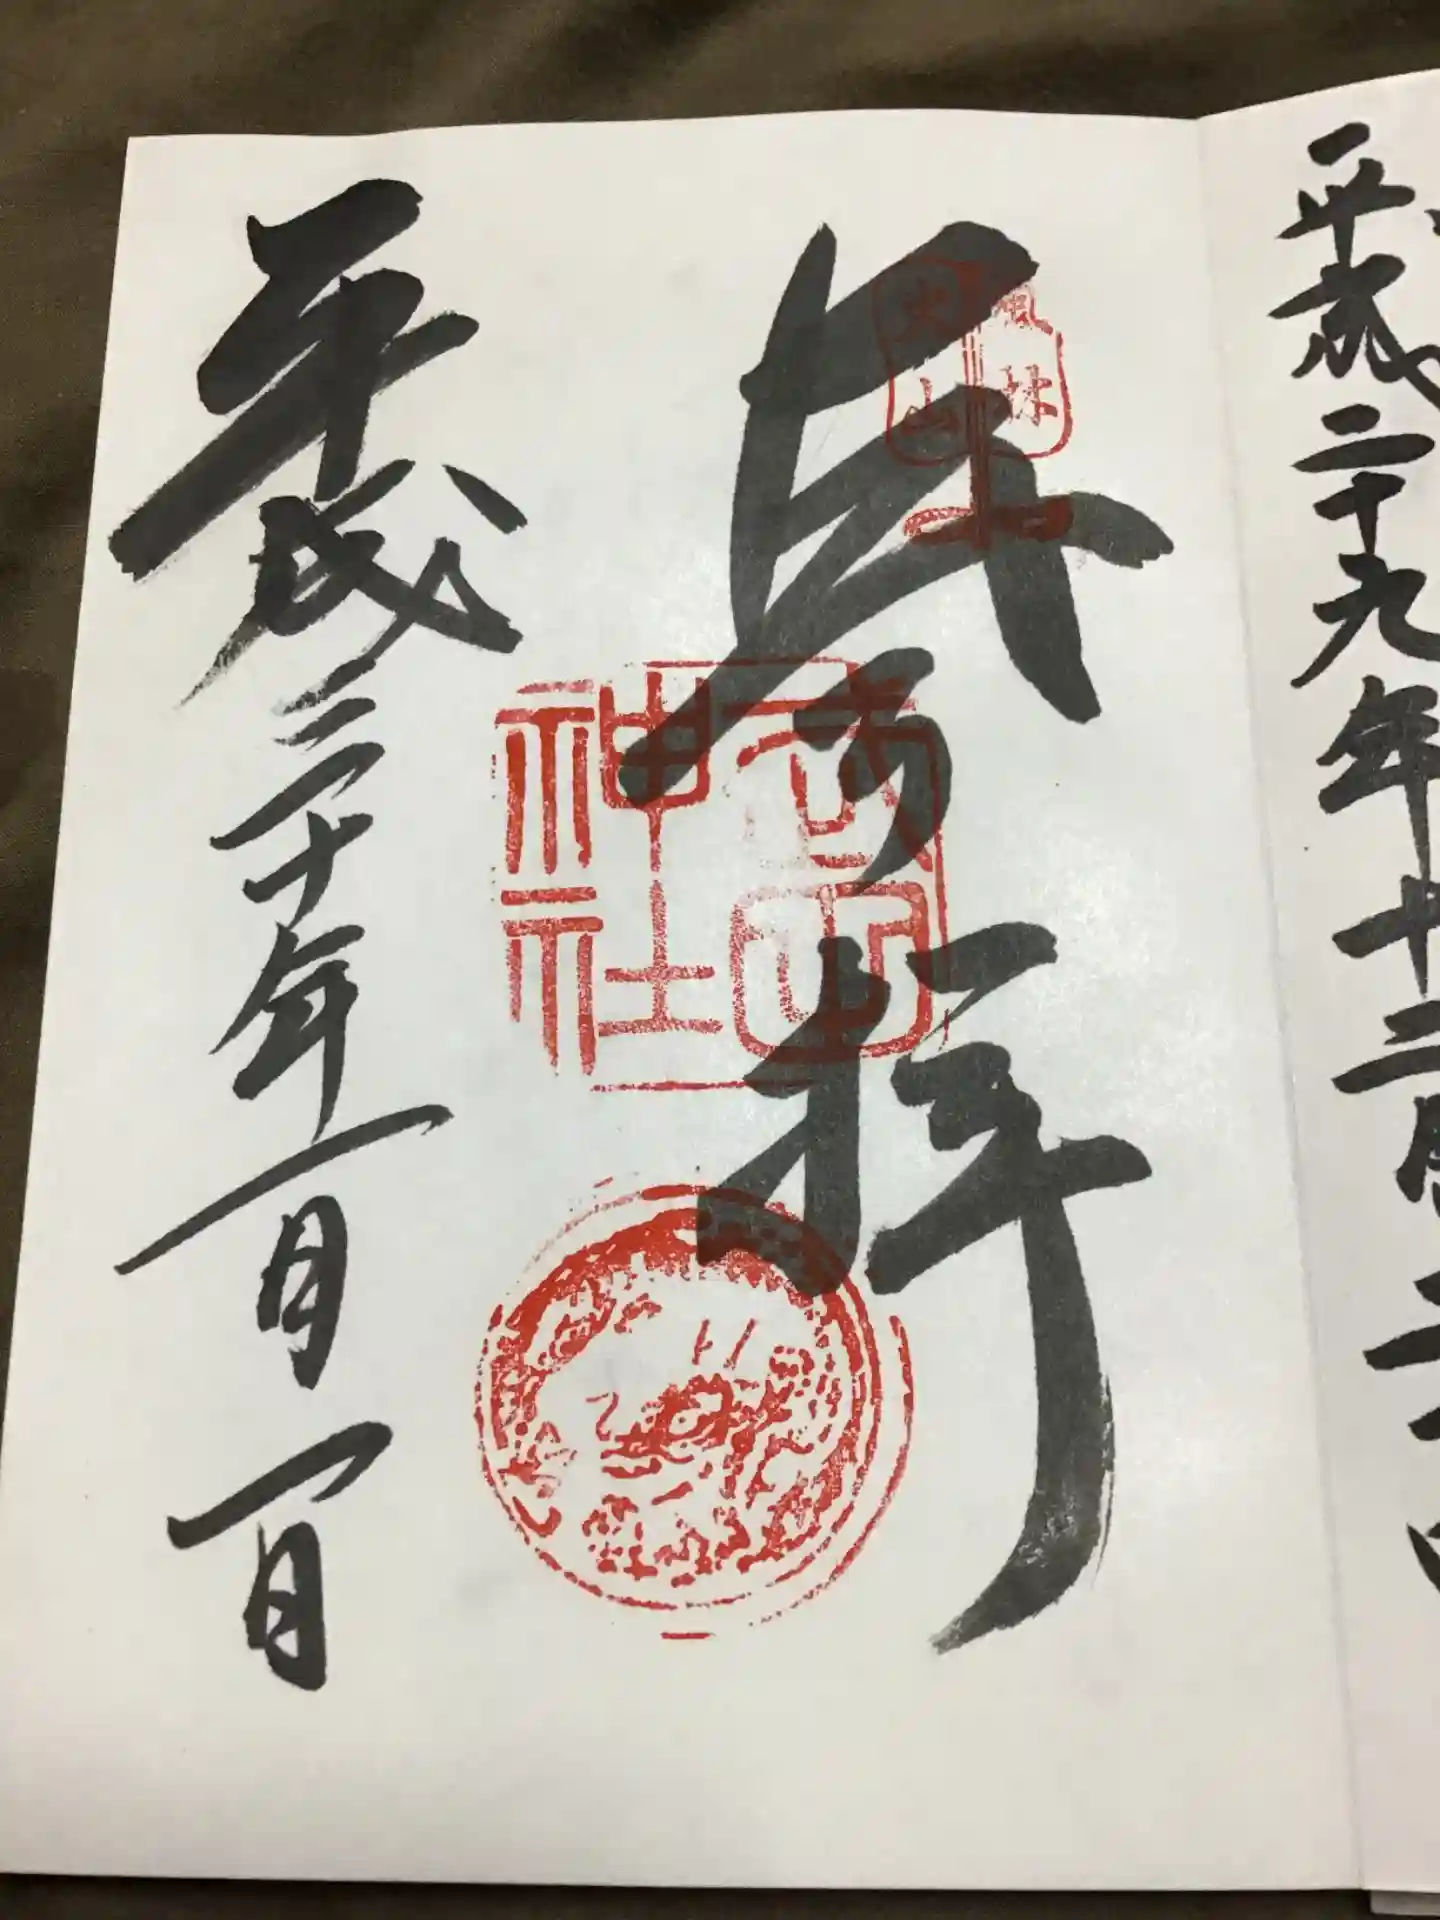 平成二十九年十二月
拝
風林
火山
武田
神社
平成三十年一月一日